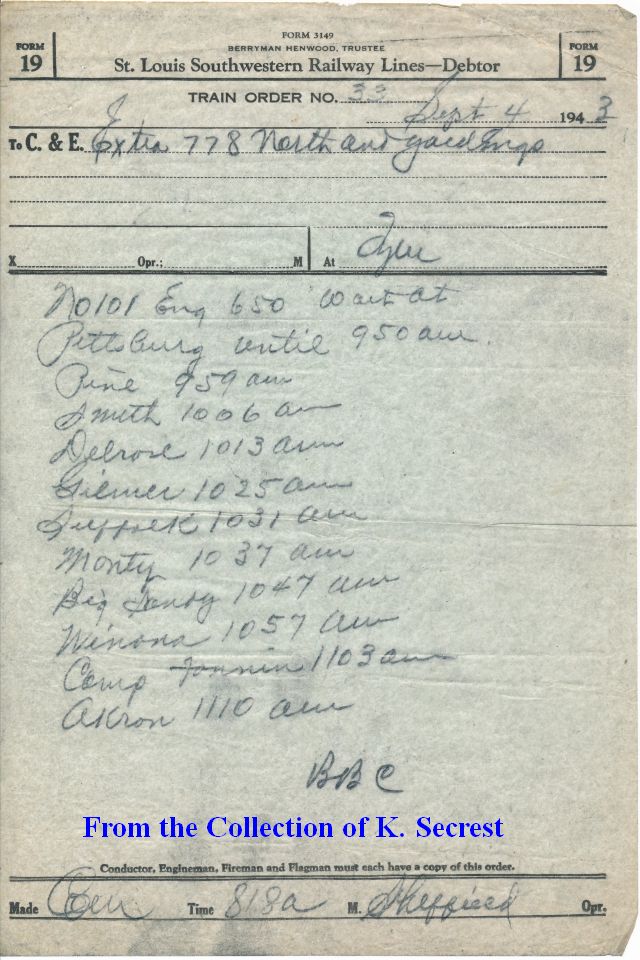 FORM 3149
BERRYMAN HENWOOD, TRUSTEE
FORM 19 St. Louis Southwestern Railway Lines—Debtor FORM 19
TRAIN ORDER NO. 33
Sept 4 1943
To C. & E. Extra 778 North and
At Tyler
X Opr.; M At
No 101 Eng 650 Wait at
Pittsburg until 950 am
Pine 959 am
Smith 1006 am
Delrose 1013 am
Gilmer 1025 am
1031 am
Monty 1037 am
Big Sandy 1047 am
Winona 1057 am
Camp Fannin 1103 am
Akron 1110 am
BBC
From the Collection of K. Secrest
Conductor, Engineman, Fireman and Flagman must each have a copy of this order.
Made Com Time 818a M. Sheffield Opr.